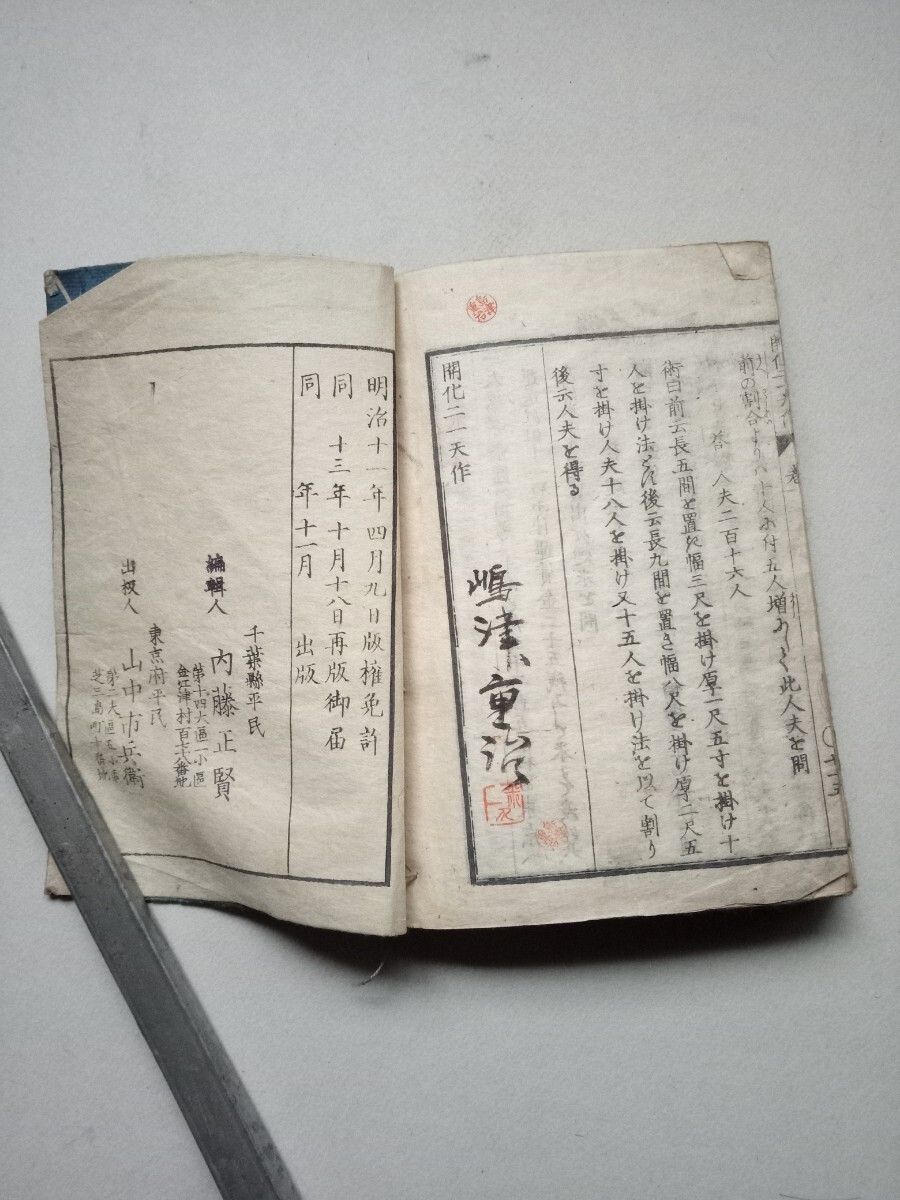 前の割合より八十人に付五人増にして此人夫を問
答 人夫二百十六人
術曰前云長五間を置き幅三尺を掛け厚一尺五寸を掛け十
人を掛け法とし後云長九間を置き幅八尺を掛け厚二尺五
寸を掛け人夫十八人を掛け又十五人を掛け法を以て割り
後云人夫を得る
開化二一天作
嶋津重治
明治十一年四月九日版権免許
同 十三年十月十八日再版御届
同 年十一月 出版
千葉縣平民
編輯人 内藤正賢
第十四大區一小區
金江津村百七十八番地
東京府平民
出板人 山中市兵衛
第二大區五小區
芝三島町十番地